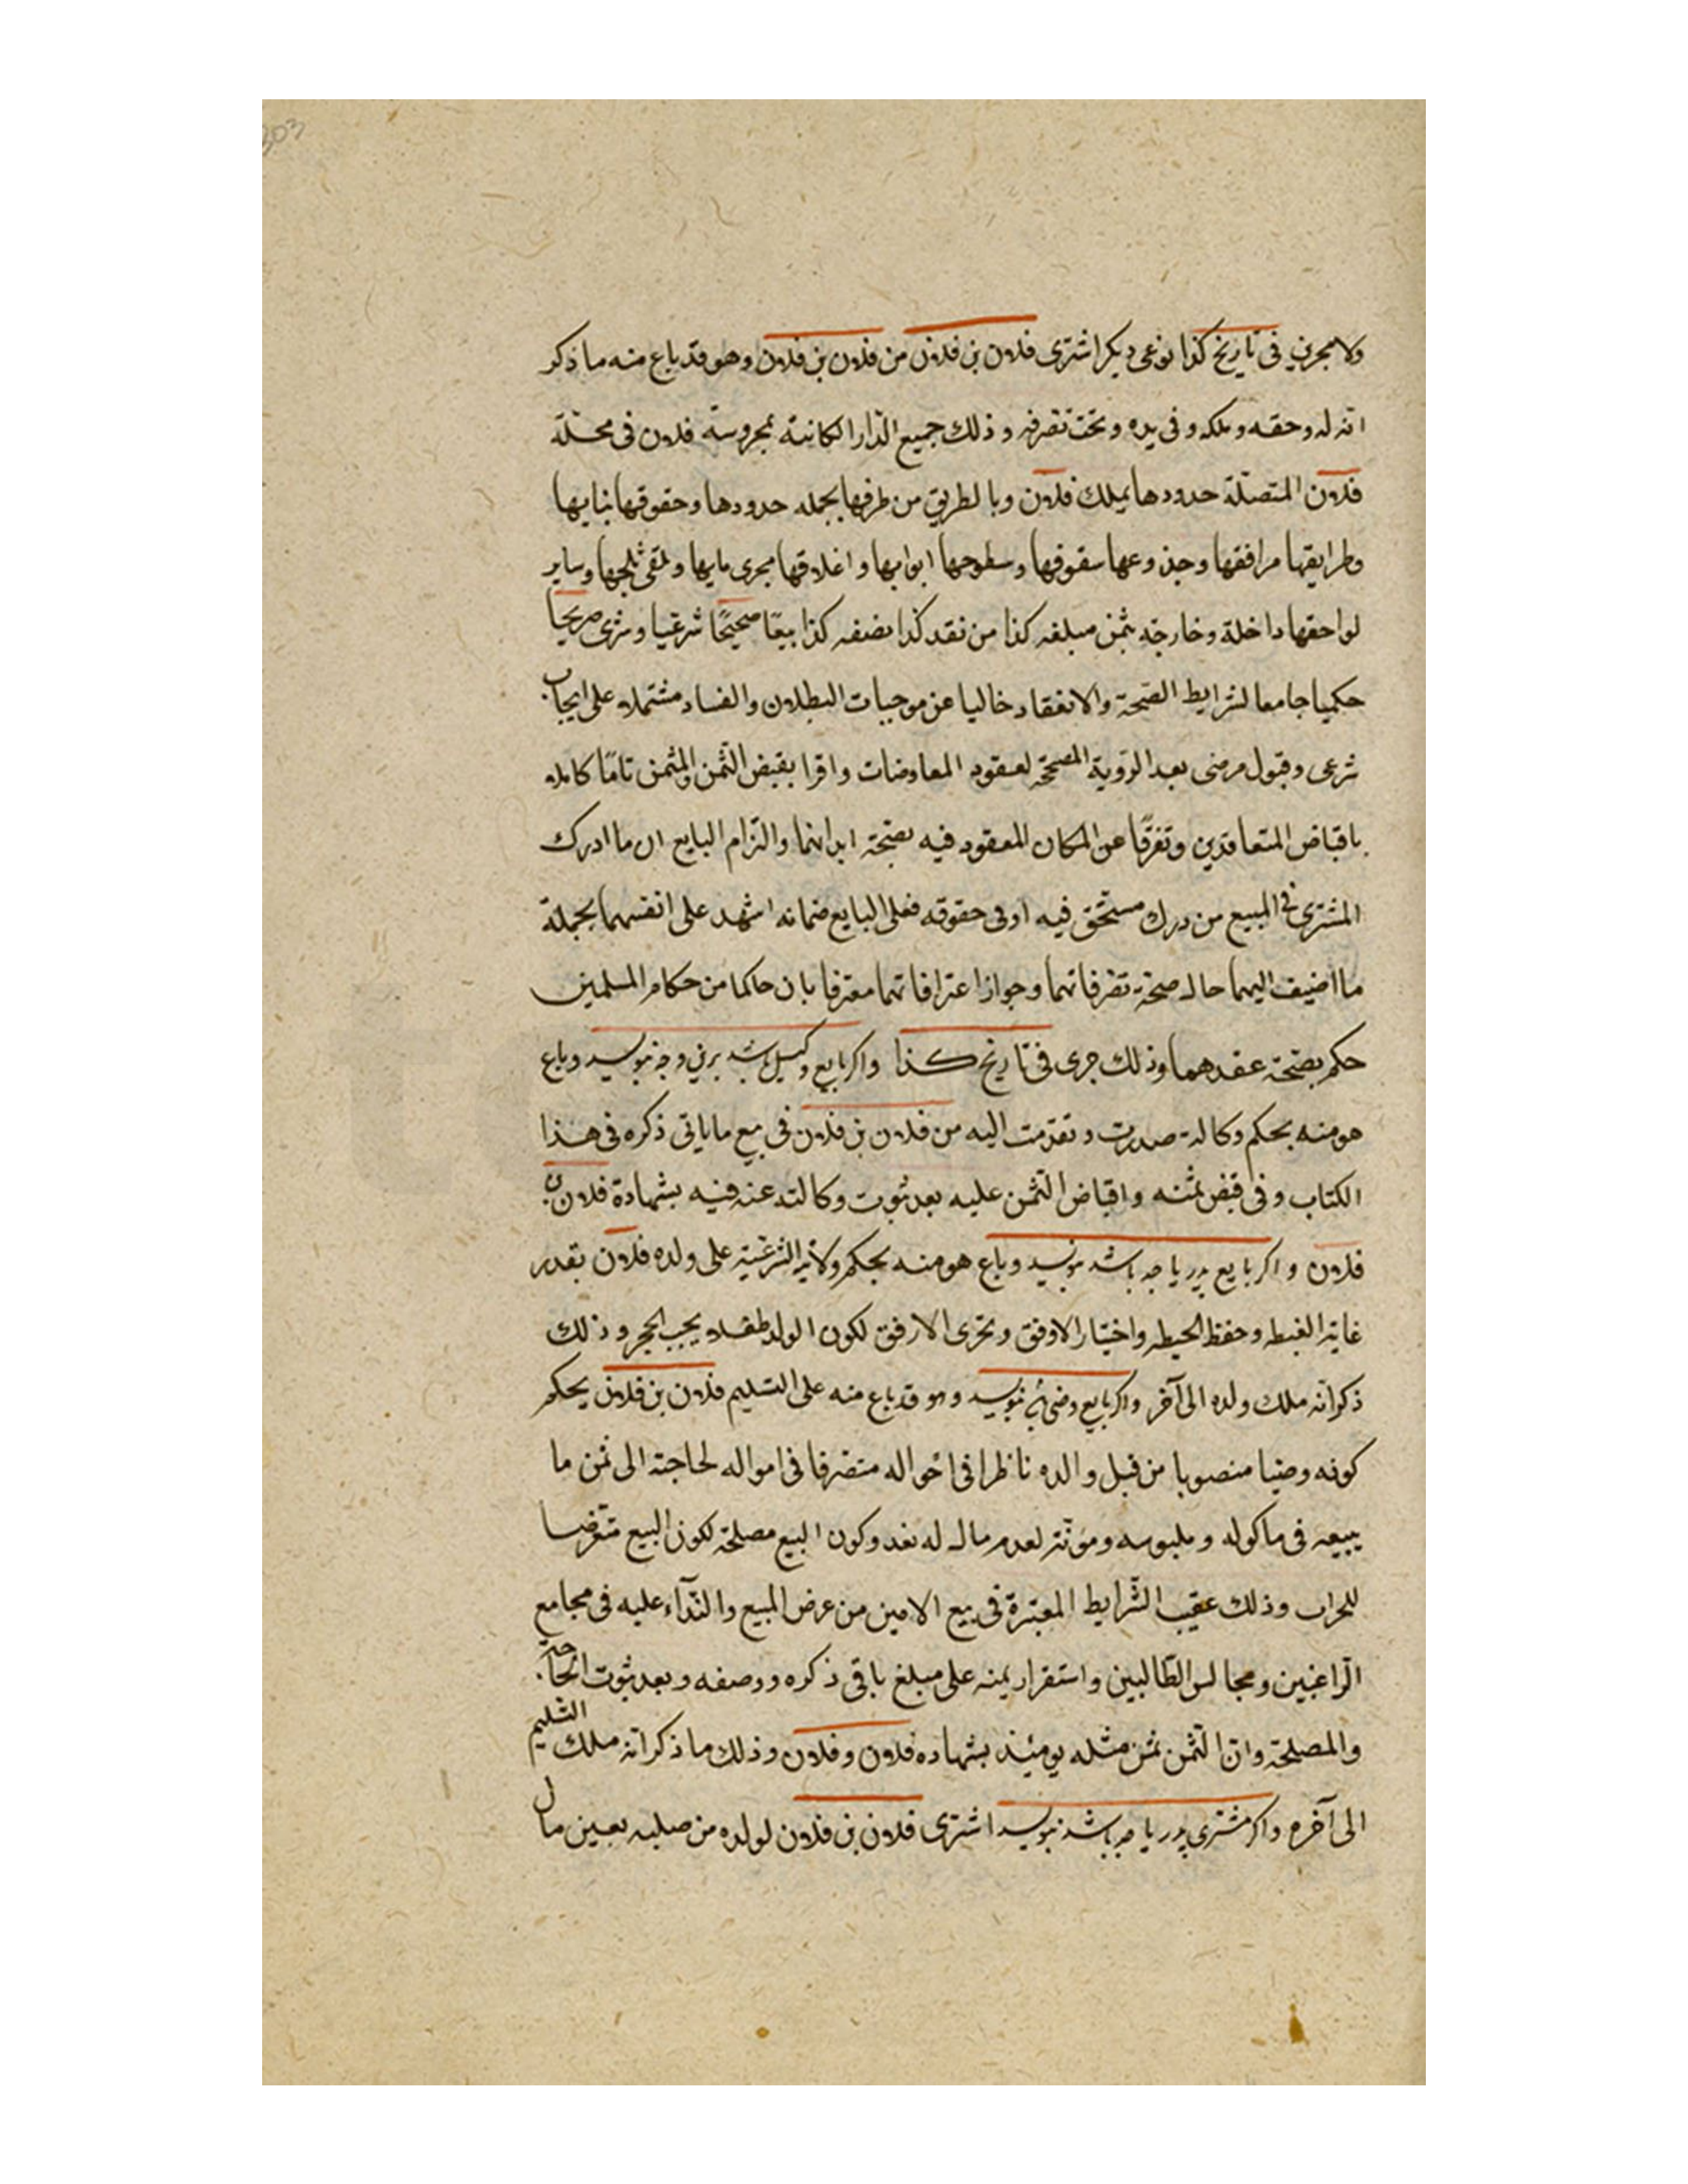 303
ولا مجرين فى تاريخ كذا نوعى ديكر اشترى فلان بن فلان من فلان بن فلان وهو قد باع منه ما ذكر
انه له وحقه وملكه وفى يده وتحت تصرفه وذلك جميع الدار الكائنة بمحروسة فلان فى محلة
فلان المتصلة حدودها بملك فلان وبالطريق من طرفها بجمله حدودها وحقوقها بنايها
وطرايقها مرافقها وجذوعها سقوفها وسطوحها ابوابها واغلاقها مجرى مايها وملقى ثلجها وساير
لواحقها داخلة وخارجه بثمن مبلغه كذا من نقد كذا نصفه كذا بيعًا صحيحًا شرعيا وشرى صريحا
حكميا جامعا لشرايط الصحة والانعقاد خاليا عن موجبات البطلان والفساد مشتملا على ايجاب
شرعى وقبول مرضى بعد الرؤية المصححة لعقود المعاوضات واقرا بقبض الثمن والمثمن تامًا كاملا
باقباض المتعاقدين وتفرقا عن المكان المعقود فيه بصحة ابدانهما والتزام البايع ان ما ادرك
المشترى فى المبيع من درك مستحق فيه او فى حقوقه فعلى البايع ضمانه اشهد على انفسهما بجملة
ما اضيف اليهما حالـ صحة تصرفاتهما وجواز اعترافاتهما معترفا بان حاكما من حكام المسلمين
حكم بصحة عقدهما وذلك جرى فى تاريخ كذا واكر بايع وكيل باشد برين وجه نويسد وباع
هو منه بحكم وكالة صدرت وتقدمت اليه من فلان بن فلان فى بيع ما ياتى ذكره فى هذا
الكتاب وفى قبض ثمنه واقباض الثمن عليه بعد ثبوت وكالته عنه فيه بشهادة فلان بن
فلان واكر بايع پدر يا جد باشد نويسد وباع هو منه بحكم ولايه الشرعية على ولده فلان بقدر
غاية الغبطه وحفظ الحيطه واختيار الاوفق وتحرى الارفق لكون الولد طفلا يجب الحجر وذلك
ذكر انه ملك ولده الى آخر واكر بايع وصى بود نويسد وهو قد باع منه على التسليم فلان بن فلان بحكم
كونه وصيا منصوبا من قبل والده ناظرا فى احواله متصرفا فى امواله لحاجته الى ثمن ما
يبيعه فى ماكوله وملبوسه ومؤنته لعدم مالـ له نقد وكون البيع مصلحة لكون البيع متعرضا
للخراب وذلك عقيب الشرايط المعتبرة فى بيع الامين من عرض المبيع والندآء عليه فى مجامع
الراغبين ومجالس الطالبين واستقرار ثمنه على مبلغ باقى ذكره ووصفه وبعد ثبوت الحاجة
والمصلحة وان الثمن ثمن مثله يومئذ بشهاده فلان وفلان وذلك ما ذكر انه ملك التسليم
الى آخره واكر مشترى پدر يا جد باشد نويسد اشترى فلان بن فلان لولده من صلبه بعين مال